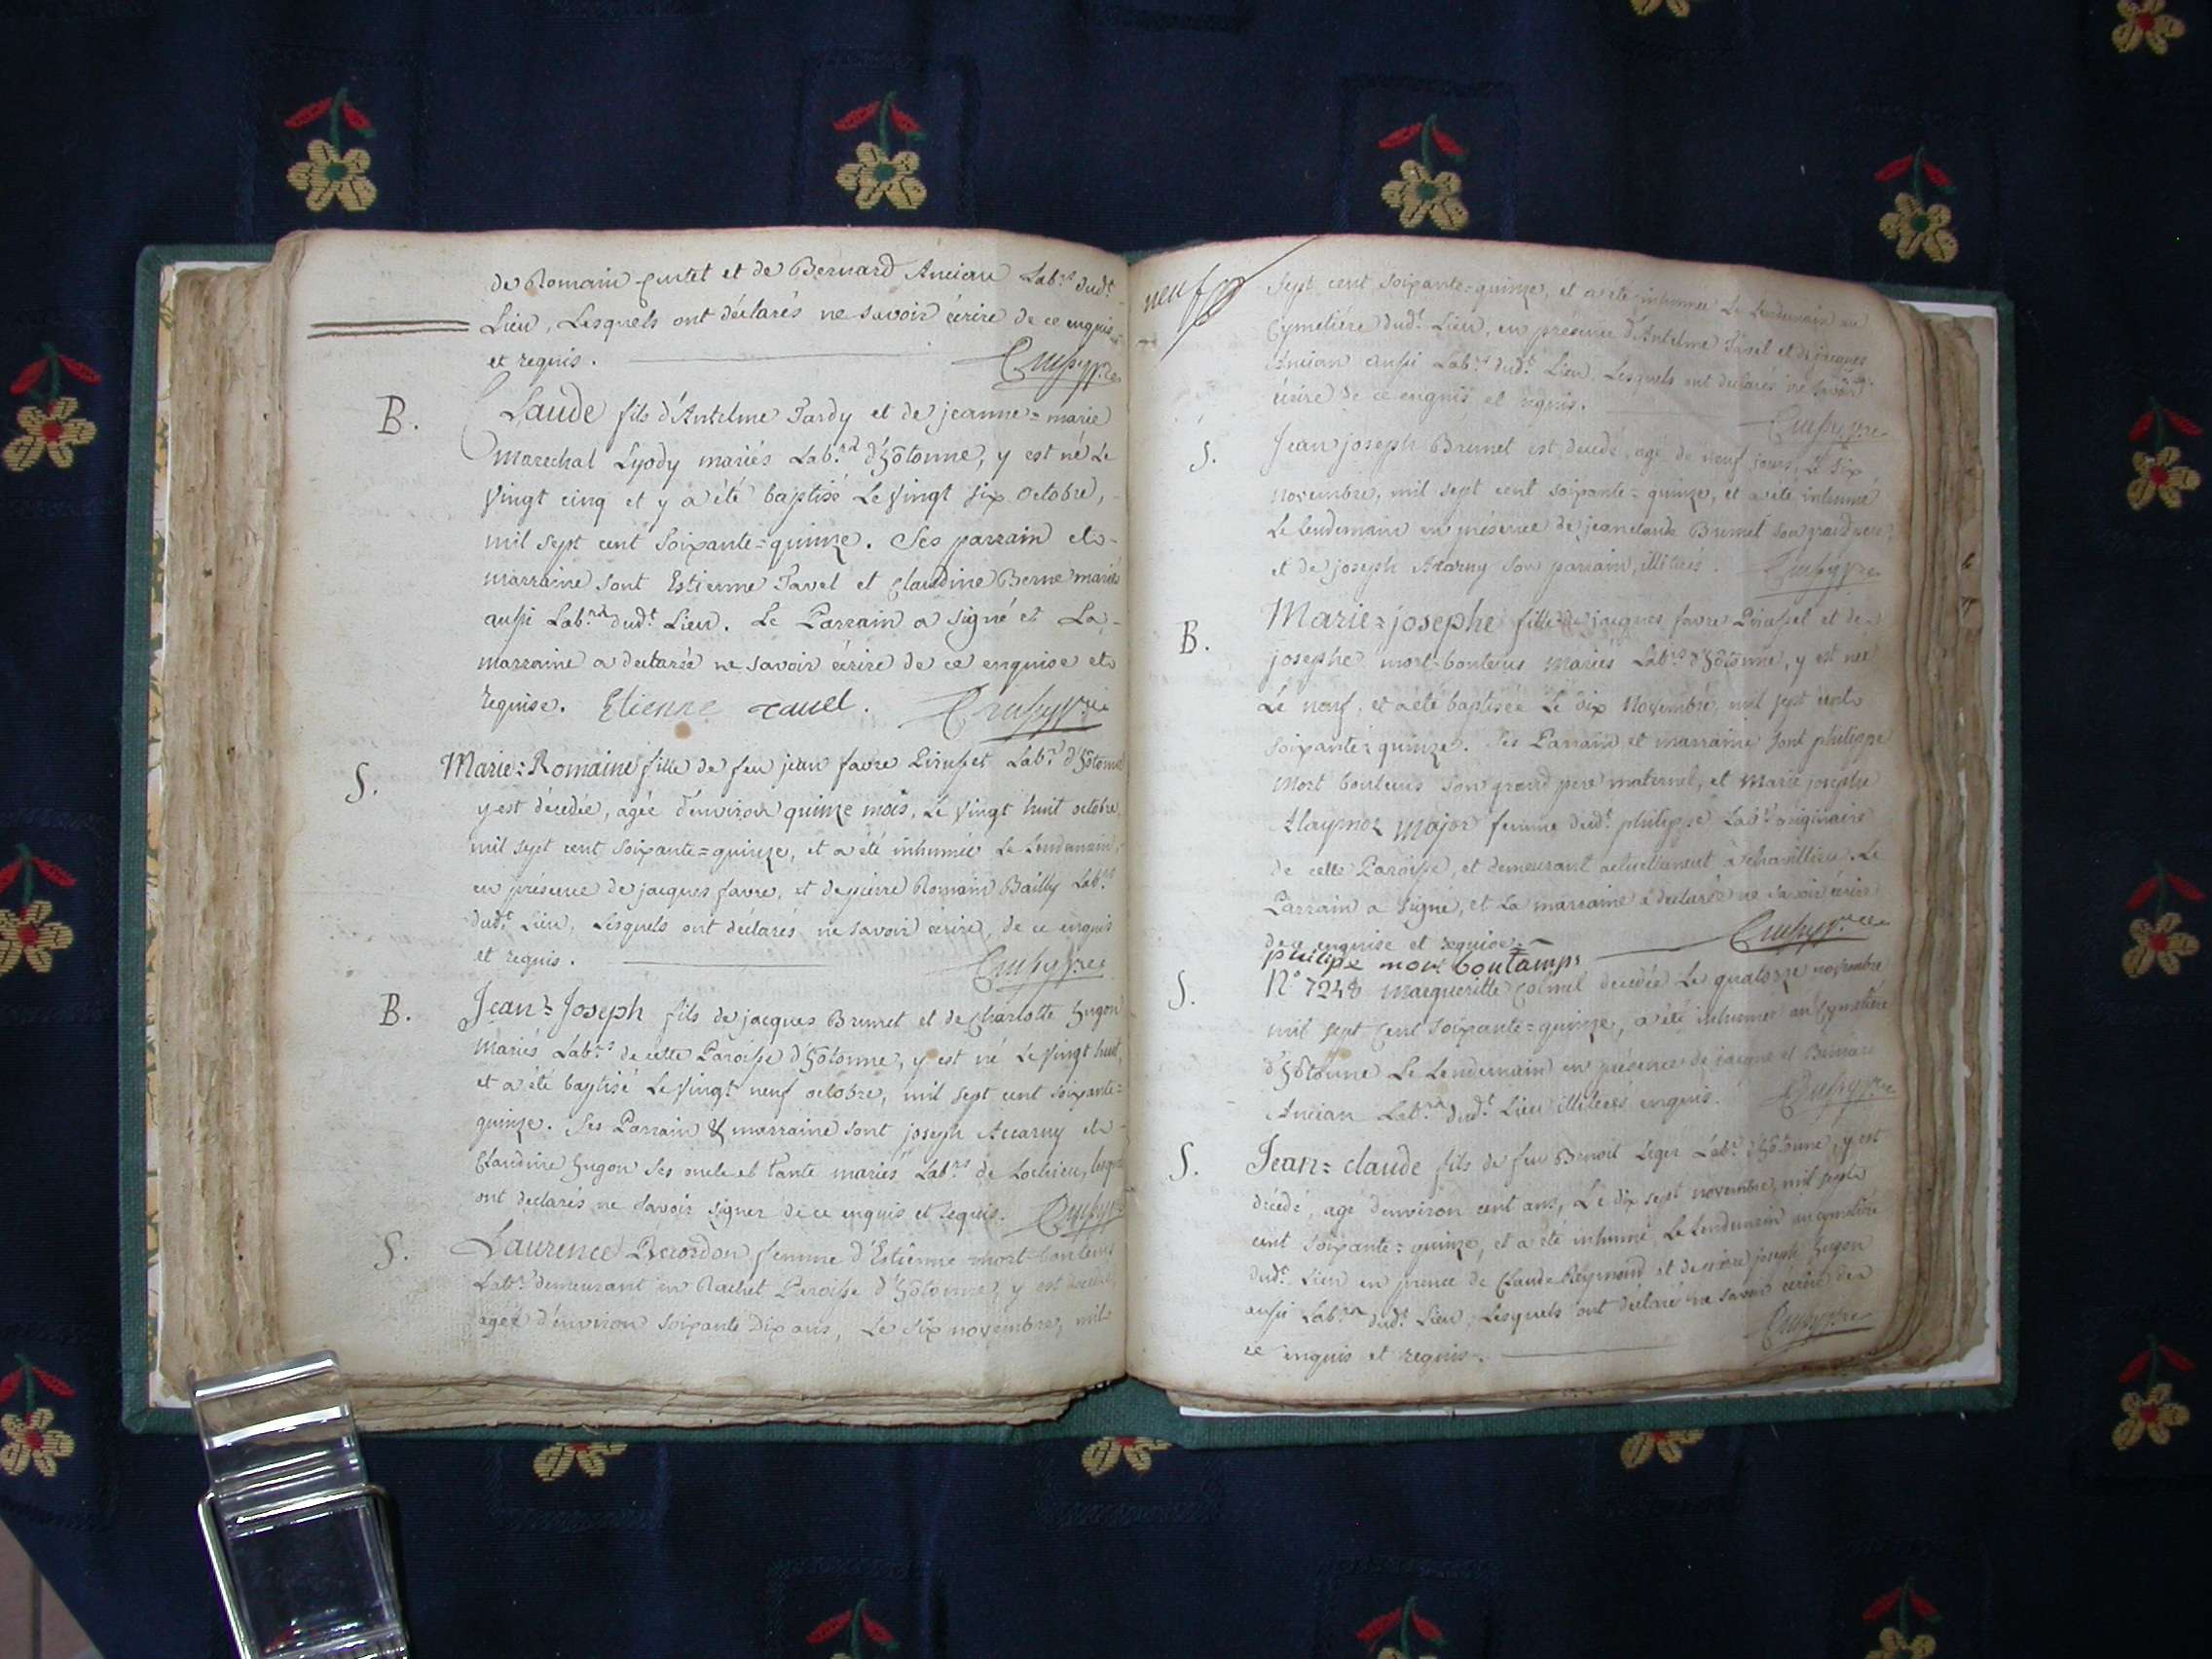 de Romain Curtet et de Bernard Ancian Lab.rs dud.t
Lieu, Lesquels ont déclarés ne savoir écrire de ce enquis
et requis.
B. Claude fils d'Antelme Tardy et de jeanne=marie
Marechal Lyody mariés Lab.rs d'hôtonne, y est né Le
Vingt cinq et y a été baptisé Le Vingt six octobre,
mil sept cent Soixante=quinze. Ses parrain et
marraine sont Estienne Tavel et Claudine Berne mariés
aussi Lab.rs dud.t Lieu. Le Parrain a signé et La
marraine a declarée ne savoir écrire de ce enquise et
requise. Etienne tavel.
S. Marie=Romaine fille de feu jean favre Lab.r d'hôtonne
y est décedée, agée d'environ quinze mois, Le Vingt huit octobre
mil sept cent Soixante=quinze, et a été inhumée Le Lendemain,
en présence de jacques favre, et de pierre Romain Bailly Lab.rs
dud.t Lieu, Lesquels ont déclarés ne savoir écrire, de ce enquis
et requis.
B. Jean=Joseph fils de jacques Brunet et de Charlotte hugon
Mariés Lab.rs de cette Paroisse d'hôtonne, y est né Le Vingt huit,
et a été baptisé Le Vingt neuf octobre, mil sept cent soixante=
quinze. Ses Parrain & marraine sont joseph Accarny et
Claudine hugon ses oncle et tante mariés Lab.rs de
ont declarés ne savoir signer de ce enquis et requis.
S. Laurence femme d'Estienne mort-boutems
Lab.r demeurant en Rachet Paroisse d'hôtonne, y est decedée
agée d'environ Soixante Dix ans, Le Six novembre, mil
neuf
sept cent Soixante=quinze, et a été inhumée Le Lendemain au
Cymetière dud.t Lieu, en présence d'Antelme Tavel et de jacques
Ancian aussi Lab.rs dud.t Lieu, Lesquels ont declarés ne savoir
écrire de ce enquis et requis.
S. Jean joseph Brunet est decedé, agé de neuf jours, Le Six
novembre, mil sept cent soixante=quinze, et a été inhumé
Le Lendemain en présence de jean claude Brunet son grand pere,
et de joseph Acarny son parrain, illitérés.
B. Marie=josephe fille de jacques favre et de
josephe mort-boutems Mariés Lab.rs d'hôtonne, y est née
Le neuf, et a été baptisée Le Dix Novembre, mil sept cent
soixante=quinze. Ses Parrain et marraine sont philippe
Mort boutems Son grand pere maternel, et Marie josephe
Major femme dud.t philippe Lab.r originaire
de cette Paroisse, et demeurant actuellement à Le
Parrain a signé, et La marraine a declarée ne savoir écrire
de ce enquise et requise.
philipe mort boutamps
S. N° 7248 Margueritte decedée Le quatorze novembre
mil sept Cent soixante=quinze, a été inhumée au Cymetière
d'hôtonne Le Lendemain en présence de jacque et Bernard
Ancian Lab.rs dud.t Lieu illiterés enquis.
S. Jean=claude fils de feu Benoit Leger Lab.r d'hôtonne, y est
décédé, agé d'environ cent ans, Le dix sept novembre, mil sept
cent Soixante=quinze, et a été inhumé Le Lendemain au cymetière
dud.t Lieu en prence de Claude Reymond et de joseph hugon
aussi Lab.rs dud.t Lieu, Lesquels ont declaré ne savoir écrire de
ce enquis et requis.